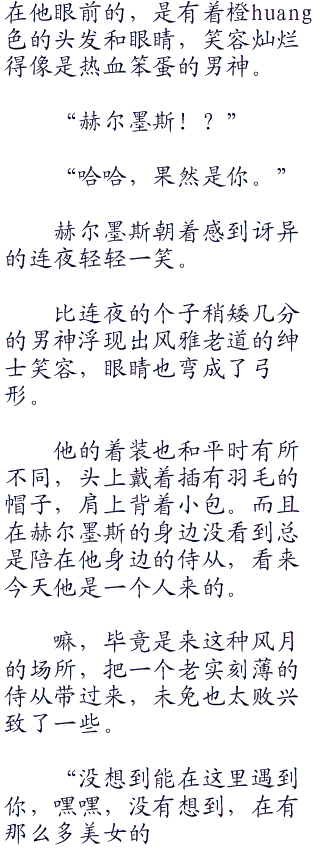 在他眼前的，是有着橙huang
色的头发和眼睛，笑容灿烂
得像是热血笨蛋的男神。
“赫尔墨斯！？”
“哈哈，果然是你。”
赫尔墨斯朝着感到讶异
的连夜轻轻一笑。
比连夜的个子稍矮几分
的男神浮现出风雅老道的绅
士笑容，眼睛也弯成了弓
形。
他的着装也和平时有所
不同，头上戴着插有羽毛的
帽子，肩上背着小包。而且
在赫尔墨斯的身边没看到总
是陪在他身边的侍从，看来
今天他是一个人来的。
嘛，毕竟是来这种风月
的场所，把一个老实刻薄的
侍从带过来，未免也太败兴
致了一些。
“没想到能在这里遇到
你，嘿嘿，没有想到，在有
那么多美女的